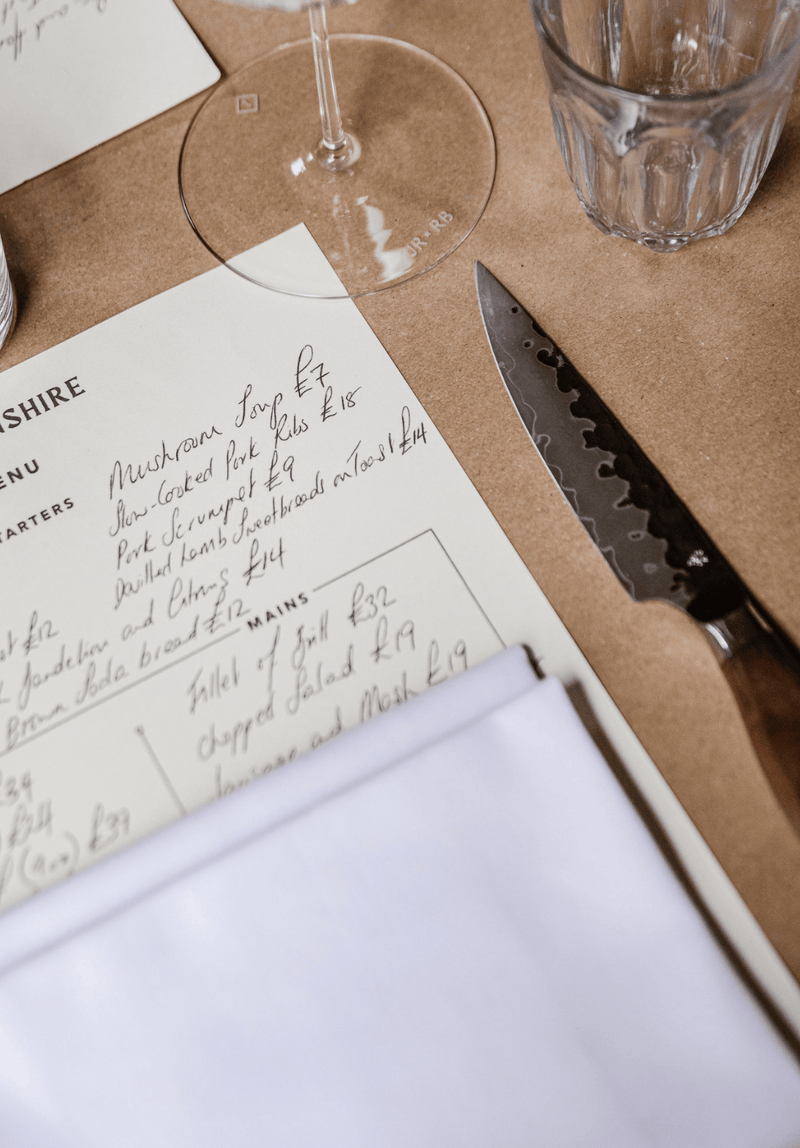 JR • RB
NSHIRE
ENU
TARTERS
Mushroom Soup £7
Slow-Cooked Pork Ribs £18
Pork Scrumpet £9
Devilled Lamb Sweetbreads on Toast £14
£12
Dandelion and Citrus £14
Brown Soda bread £12
MAINS
Fillet of £32
Chopped Salad £19
and Mash £19
£34
£24
£39